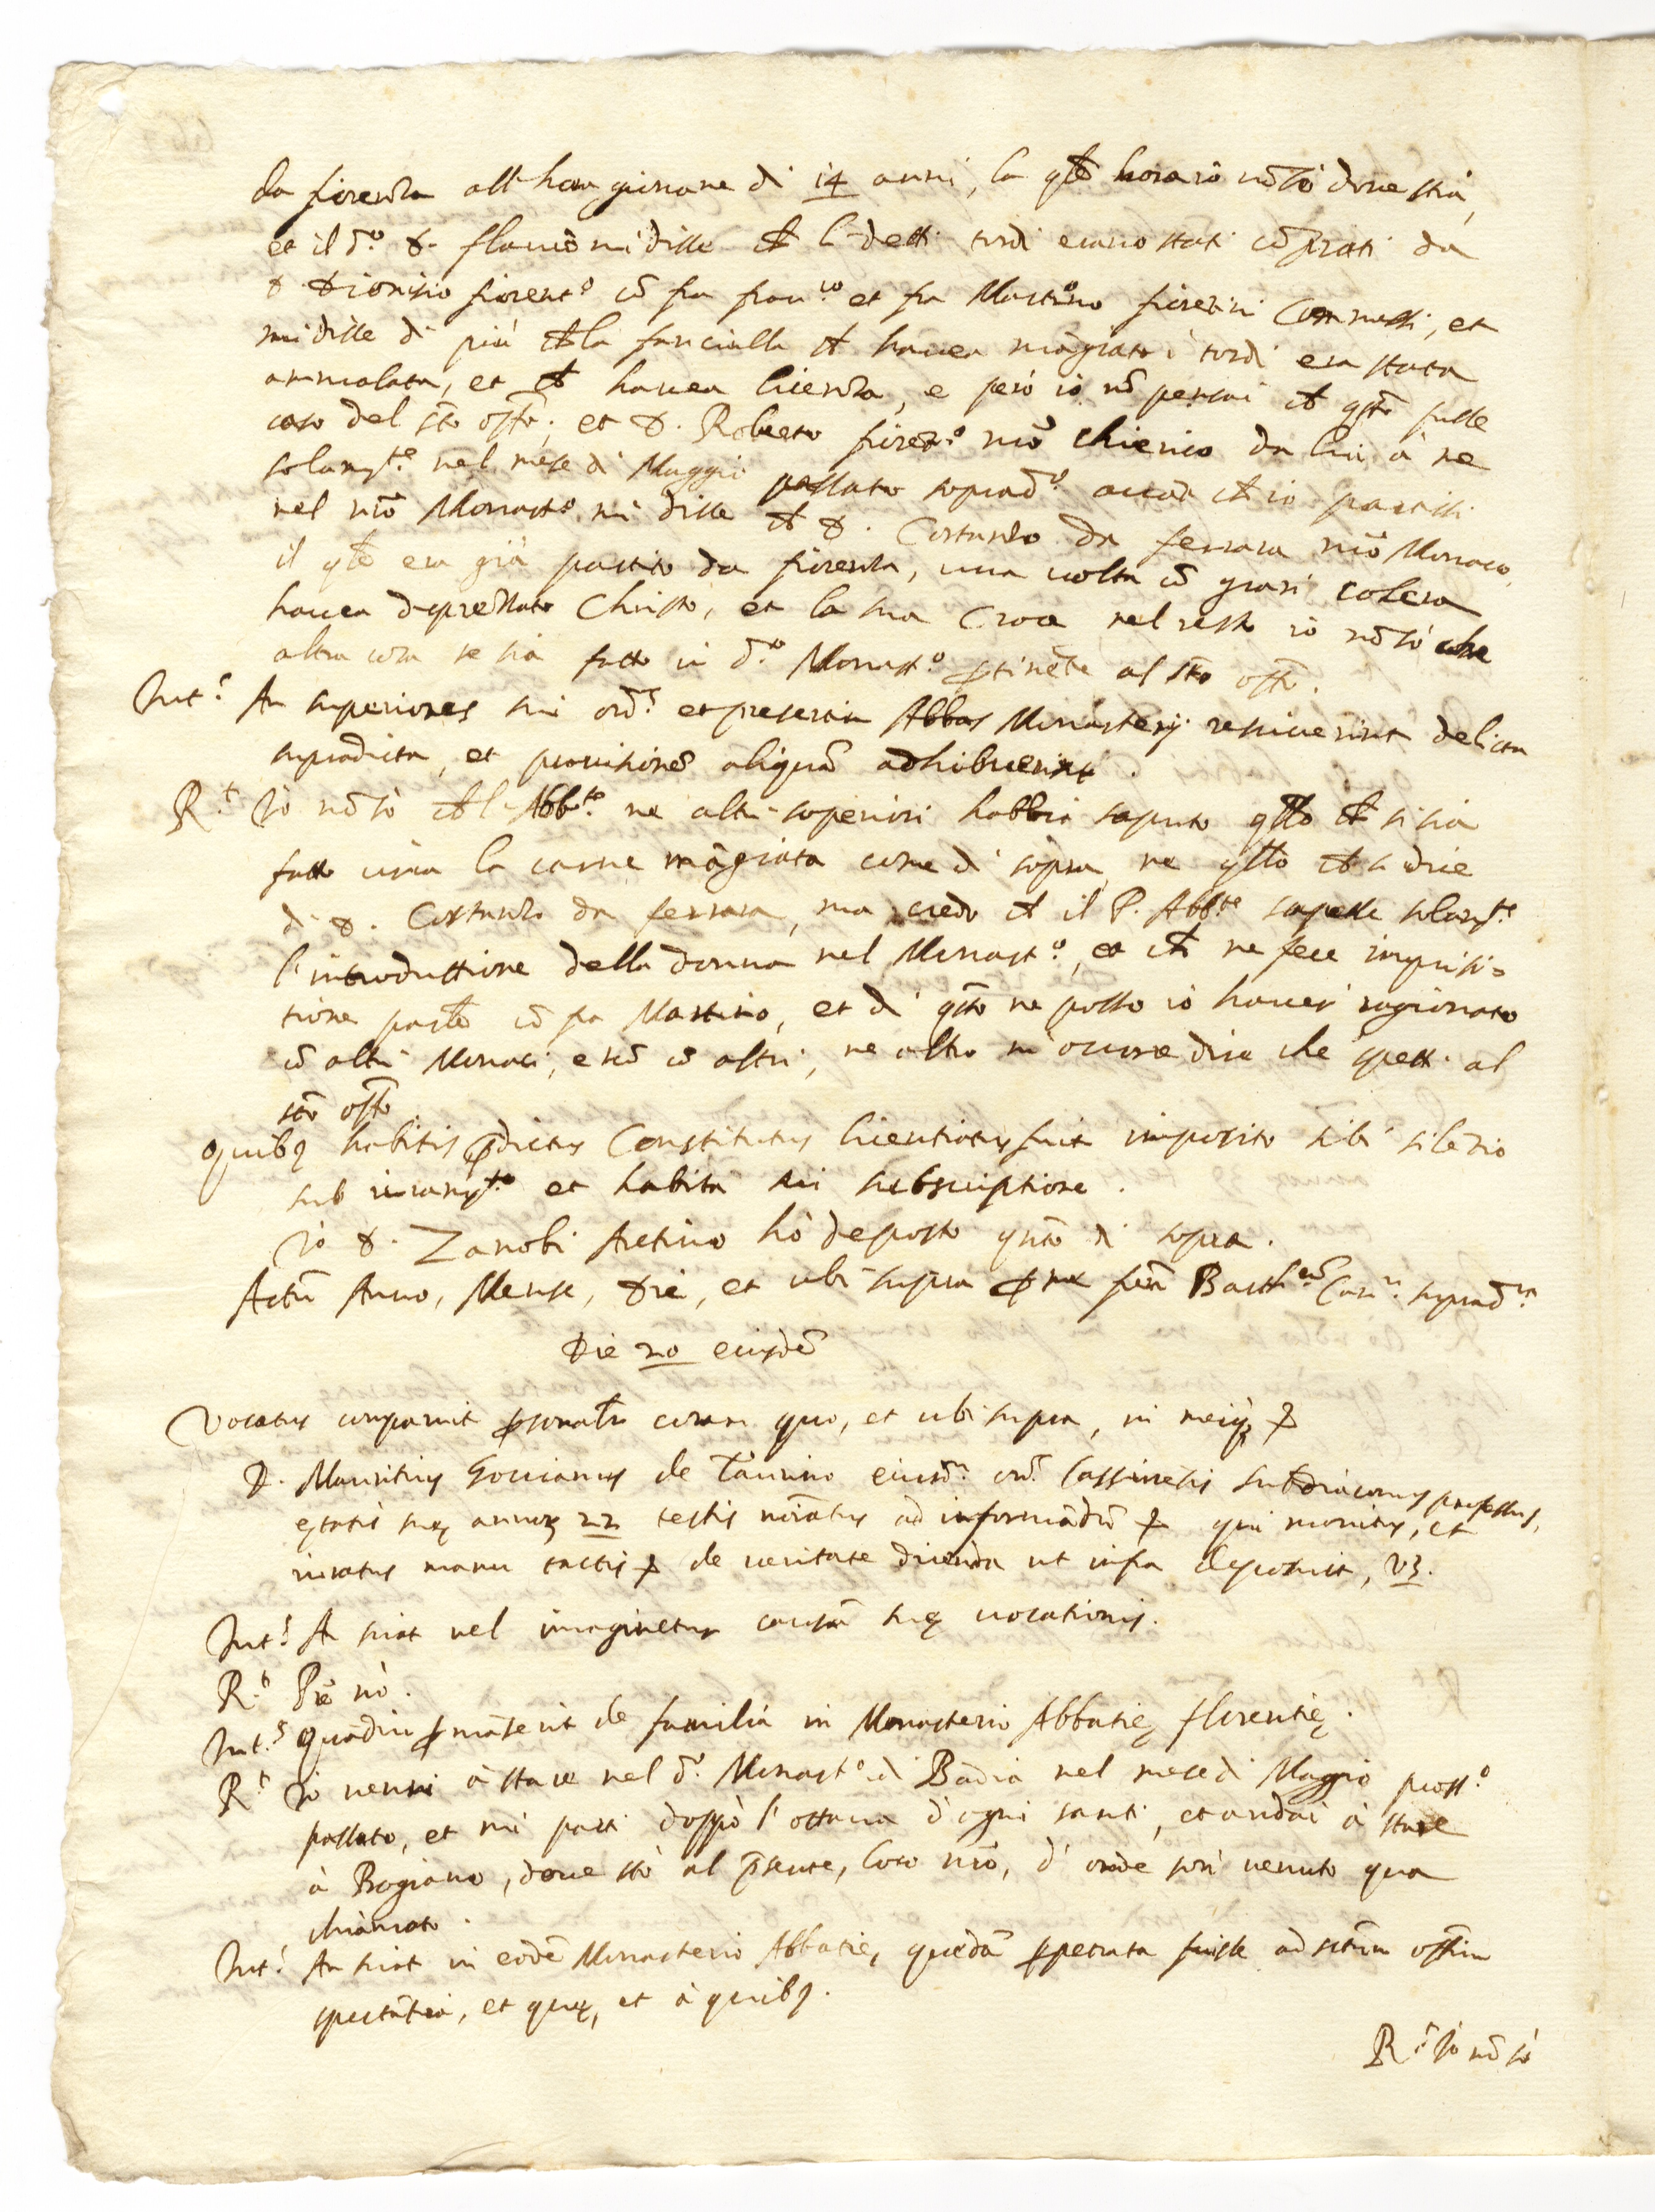 da fiorenza all'hora giovane di 14 anni, la qle hora io nõ sò dove stia,
et il d.º D. flavio mi disse ch li detti tordi erano stati cõprati da
D Dionisio fiorent.º cõ fra fran.co et fra Martino fiorentini Commessi, et
mi disse di più ch la fanciulla ch havea mãgiato i tordi era stata
ammalata, et ch havea licenza, e però io nõ pensai ch qsto fusse
caso del sto offo; et D. Roberto fiorent.º nro chierico da lui à me
solamte nel mese di Maggio passato soprad.º avãti ch io partissi
nel nro Monastº mi disse ch D. Costanzo da ferrara nro Monaco,
il qle era già partito da fiorenza, una volta cõ gran colera
havea disprezzato Christo, et la sua Croce nel resto io nõ sò che
altra cosa se sia fatto in d.º Monast.º ptinẽte al sto offo.
Int.s An superiores sui ord.s et presertim Abbas Monasterij resciverint delicta
supradicta, et provisionẽ aliquã adhibuerint.
R.t Io nõ sò ch l'Abb.te ne altri superiori habbia saputo qllo ch si sia
fatto circa la carne mãgiata come di sopra, ne qllo ch si dice
di D. Costanzo da ferrara, ma credo ch il P. Abbte sapesse solamte
l'introduttione della donna nel Monast.º, et ch ne fece inquisi=
tione parlãdo cõ fra Martino, et di qsto ne posso io haver ragionato
cõ altri Monaci, e nõ cõ altri, ne altro m'occorre dire che spetti al
sto offo
Quibq habitis pdictus Constitutus licentiatus fuit imposito sibi silẽtio
sub iuramto et habita sui subscriptione.
Io D. Zanobi Aretino hò deposto qnto di sopra.
Actũ Anno, Mense, Die, et ubi supra p me frẽ Barth.eũ Can.m suprad.m
Die 20 eiusdẽ
Vocatus comparuit psonalr coram quo, et ubi supra, in meiq &
D. Mauritius de Taurino eiusd.m ord.s Cassinẽsis subdiaconus professus,
ętatis suę annoꝝ 22 testis noĩatus ad informãdũ & qui monitus, et
iuratus manu tactis & de veritate dicenda ut infra deposuit, vz.
Int.s An sciat vel imaginetur causã suę vocationis.
R.t Pře nò.
Int.s Quãdiu pmãserit de familia in Monasterio Abbatię florentię.
R.t Io venni à stare nel d.º Monast.º di Badia nel mese di Maggio pross.º
passato, et mi parti doppò l'ottava d'ogni santi, et andai à stare
à Bugiano, dove stò al pñsente, loco nrõ, d'onde son venuto qua
chiamato.
Int.s An sciat in eodẽ Monasterio Abbatię, quędã ppetrata fuisse ad sctũm offiũm
spectãtia, et quę, et à quibq.
R.t Io nõ sò